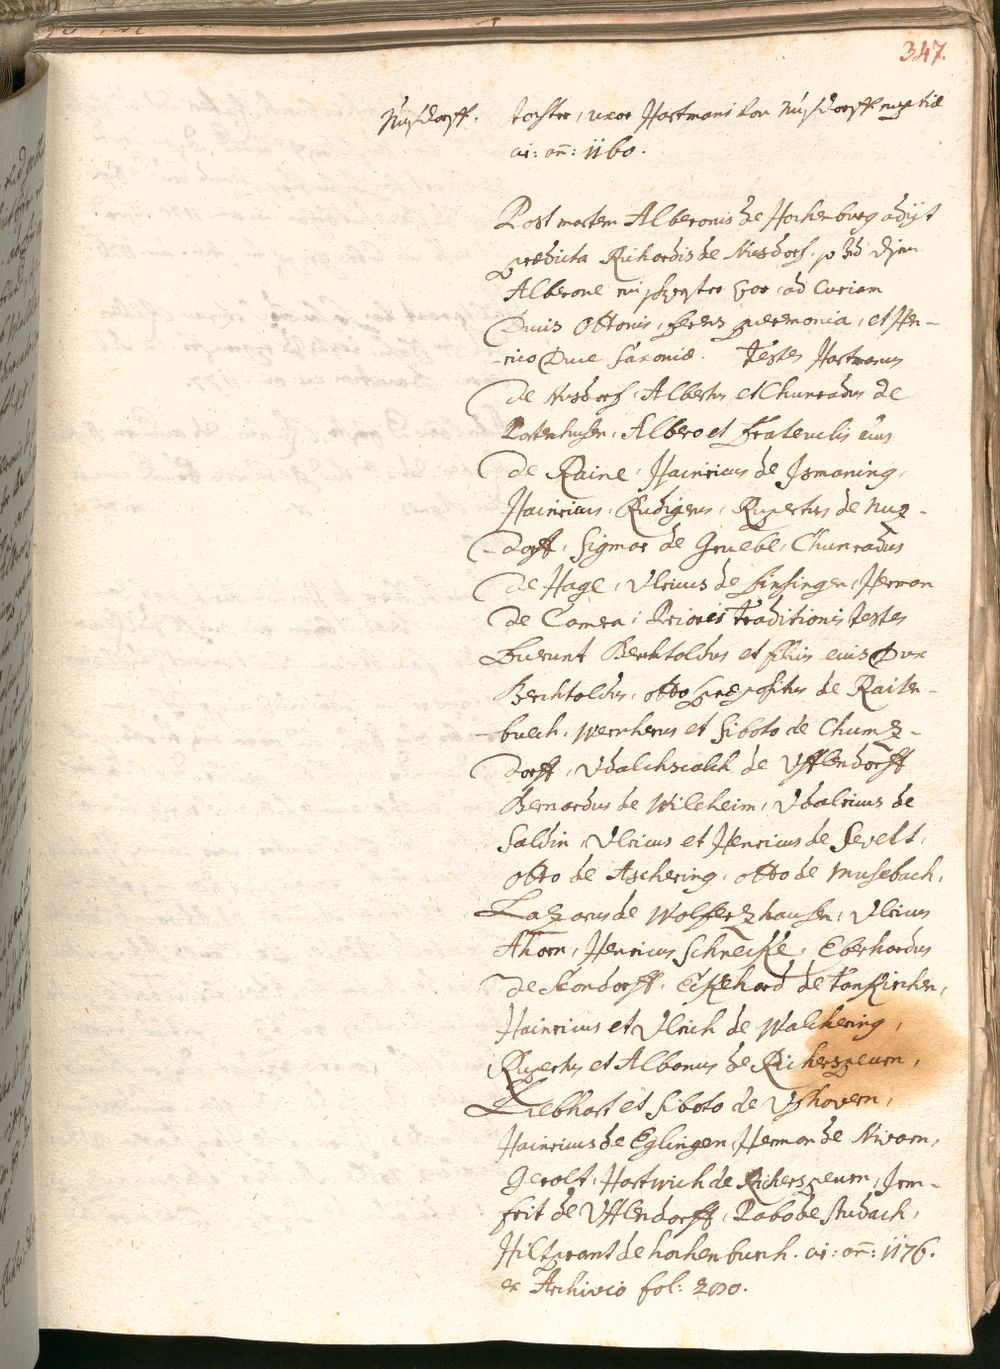 347.
Nusdorff. tochter, uxor Hartmani von Nusdorff nuptiae
ci: añ: 1160.
Post mortem Alberonis de Hochenburg adijt
praedicta Richardis de Nusdorf
Alberone ad Curiam
Ducis Ottonis, ferens quermonia, et Hen-
rico Duce Saxoniae. Testes Hartmanus
de Nusdorf, Albertus et Chunradus de
Rotenhusen, Albero et fratruelis eius
de Raine, Hainricus de Ismaning,
Hainricus, Rudigerus, Rupertus de Nuz-
dorff, Sigmar de Gruebe, Chunradus
de Hage, Ulricus de Sinsingen, Herman
de Camra, Prioris traditionis testes
fuerunt Berchtoldus et filius eius Dux
Berchtoldus, Otto praepositus de Raiten-
buech, Wernherus et Siboto de Chumz-
dorff, Vdalchscalch de Vfflendorff
Bernardus de Wilcheim, Vdalricus de
Saldin, Ulricus et Henricus de Sevelt,
Otto de Aschering, Otto de Musebach,
Lazarus de Wolferzhausen, Ulricus
Ahorn, Henricus Schnecke, Eberhardus
de Sondorff, Eckehard de Tankirchen,
Hainricus et Ulrich de Walchering,
Rupertus et Albanus de Richerspeurn,
Liebhart et Siboto de Vshovern,
Hainricus de Eglingen, Herman de Nivarn,
Gerolt, Hartwich de Richerspeurn, Irm-
frit de Vfflendorff, Rabo de Studach,
Hiltprant de hochenburch. ci: añ: 1176.
ex Archivio fol: 200.